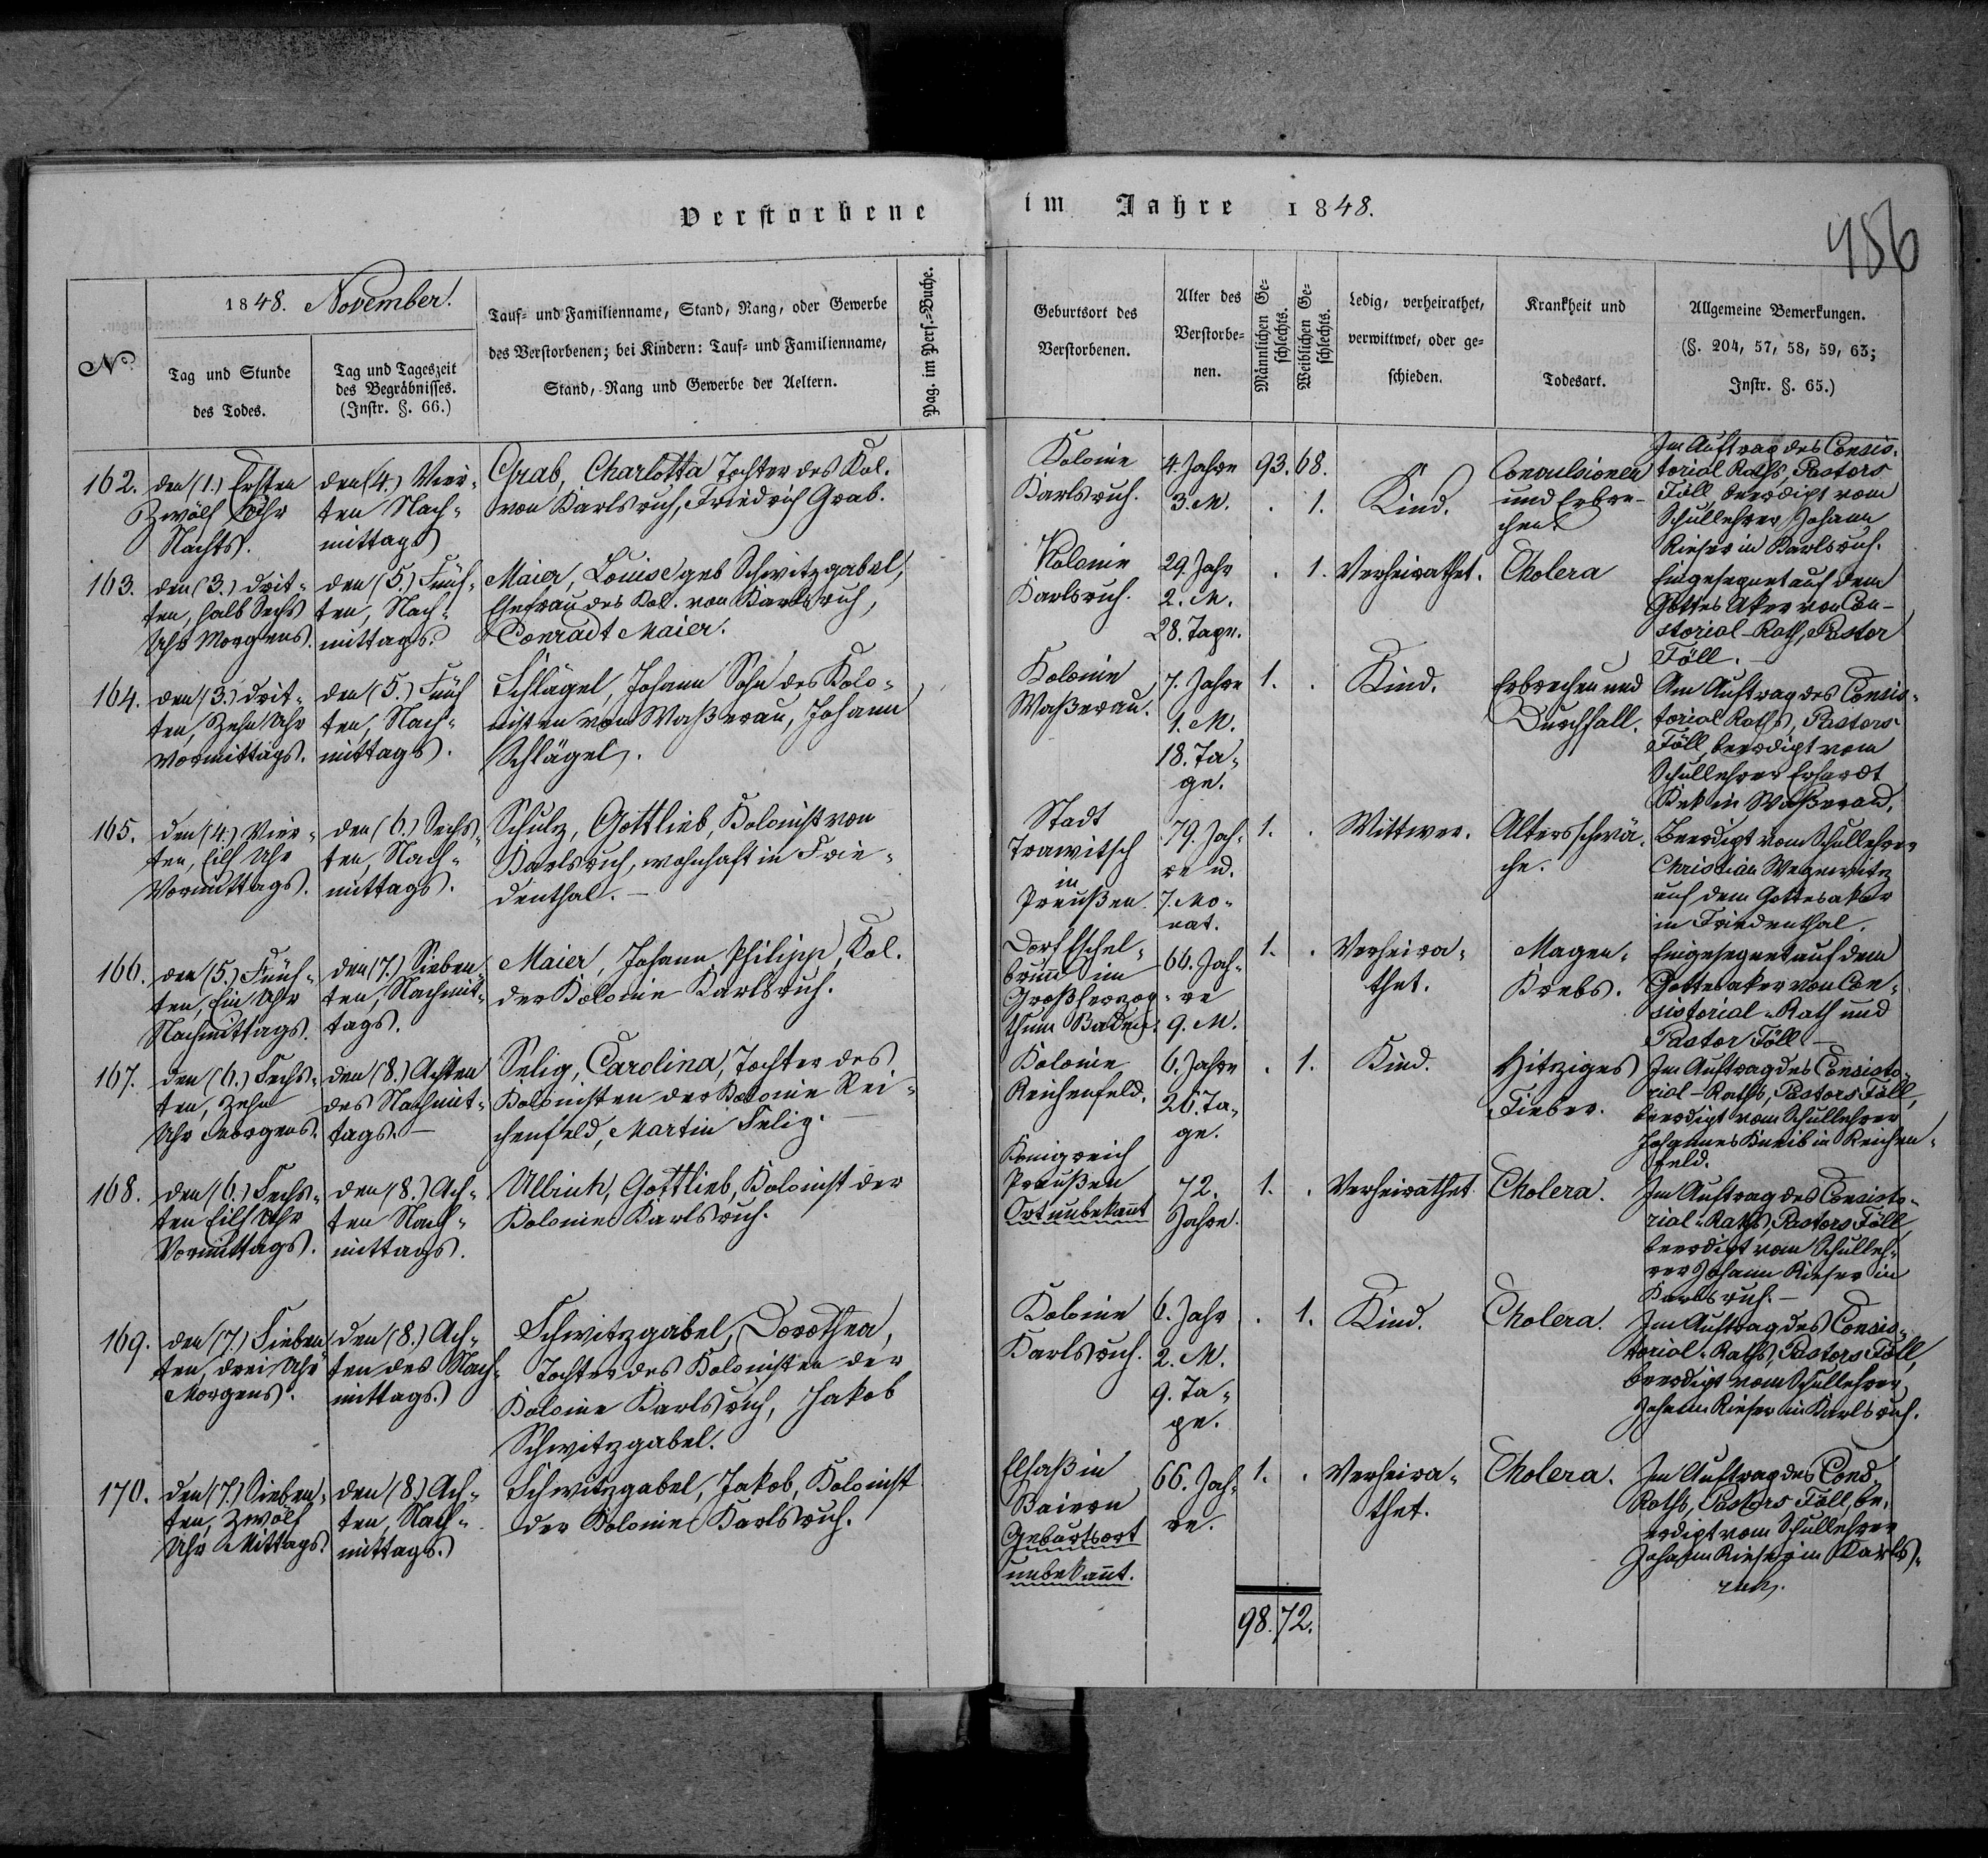 Verstorbene im Jahre 1848.
486
No.
1848. November.
Tag und Stunde
des Todes.
Tag und Tageszeit
des Begräbnisses.
(Instr. §. 66.)
Tauf- und Familienname, Stand, Rang, oder Gewerbe
des Verstorbenen; bei Kindern: Tauf- und Familienname,
Stand, Rang und Gewerbe der Aeltern.
Pag. im Pers.-Buche.
Geburtsort des
Verstorbenen.
Alter des
Verstorbe-
nen.
Männlichen Ge-
schlechts.
Weiblichen Ge-
schlechts.
Ledig, verheirathet,
verwittwet, oder ge-
schieden.
Krankheit und
Todesart.
Allgemeine Bemerkungen.
(§. 204, 57, 58, 59, 63;
Instr. §. 65.)
162.
den (1.) Ersten
Zwölf Uhr
Nachts.
den (4.) Vier-
ten Nach-
mittags
Grab, Charlotta Tochter des Kol.
von Karlsruh, Friedrich Grab.
Kolonie
Karlsruh.
4. Jahre
3. M.
93. 68.
. 1.
Kind.
Convulsionen
und Erbre-
chen
Im Auftrag des Consis-
torial Raths, Pastors
Föll, beerdigt vom
Schullehrer Johann
Rieser in Karlsruh.
163.
den (3.) Drit-
ten, halb Sechs
Uhr Morgens.
den (5.) Fünf-
ten, Nach-
mittags.
Maier, Louise geb Schwitzgabel,
Ehefrau des Kol. von Karlsruh,
Conradt Maier.
Kolonie
Karlsruh.
29. Jahr
2. M.
28. Tage.
. 1.
Verheirathet.
Cholera
Eingesegnet auf dem
Gottes Aker von Con-
storial-Rath, Pastor
Föll.
164.
den (3.) Drit-
ten, Zehn Uhr
Vormittags.
den (5.) Fünf
ten, Nach-
mittags.
Schlägel, Johann Sohn des Kolo-
nisten von Waßerau, Johann
Schlägel.
Kolonie
Waßerau.
7. Jahre
1. M.
18. Ta-
ge.
1. .
Kind.
Erbrechen und
Durchfall.
Am Auftrag des Consis-
torial Raths, Pastors
Föll, beerdigt vom
Schullehrer Erhardt
in Waßerau.
165.
den (4.) Vier-
ten, Eilf Uhr
Vormittags.
den (6.) Sechs-
ten, Nach-
mittags.
Schulz, Gottlieb, Kolonist von
Karlsruh, wohnhaft in Frie-
denthal. -
Stadt
Trawitsch
in
Preußen.
79. Jah-
re u.
7. Mo-
nat.
1. .
Wittwer.
Altersschwä-
che.
Beerdigt vom Schullehrer
Christian
auf dem Gottesaker
in Friedenthal.
166.
den (5.) Fünf-
ten, Ein Uhr
Nachmittags.
den (7.) Sieben-
ten, Nachmit-
tags.
Maier, Johann Philipp, Kol.
der Kolonie Karlsruh.
Dorf Eschel-
brunn im
Großherzog-
thum Baden.
66. Jah-
re
9. M.
1. .
Verheira-
thet.
Magen-
Krebs.
Eingesegnet auf dem
Gottesaker von Con-
sistorial-Rath und
Pastor Föll -
167.
den (6.) Sechs-
ten, Zehn
Uhr Morgens.
den (8.) Achten
des Nachmit-
tags. -
Selig, Carolina, Tochter des
Kolonisten der Kolonie Rei-
chenfeld, Martin Selig. -
Kolonie
Reichenfeld.
6. Jahre
26. Ta-
ge.
. 1.
Kind.
Hitziges
Fieber.
Im Auftrag des Consisto-
rial-Raths, Pastors Föll,
beerdigt vom Schullehrer
Johannes Kneib in Reichen-
feld.
168.
den (6.) Sechs-
ten Eilf Uhr
Vormittags.
den (8.) Ach-
ten Nach-
mittags.
Ullrich, Gottlieb, Kolonist der
Kolonie Karlsruh.
Königreich
Preußen
Ort unbekannt
72.
Jahre.
1. .
Verheirathet
Cholera.
Im Auftrag des Consisto-
rial-Raths, Pastors Föll,
beerdigt vom Schulleh-
rer Johann Rieser in
Karlsruh. -
169.
den (7.) Sieben
ten, drei Uhr
Morgens.
den (8.) Ach-
ten des Nach-
mittags.
Schwitzgabel, Dorothea,
Tochter des Kolonisten der
Kolonie Karlsruh, Jakob
Schwitzgabel.
Kolonie
Karlsruh.
6. Jahr
2. M.
9. Ta-
ge.
. 1.
Kind.
Cholera.
Im Auftrag des Consis-
torial-Raths, Pastors Föll,
beerdigt vom Schullehrer
Johann Rieser in Karlsruh.
170.
den (7.) Sieben-
ten, Zwölf
Uhr Mittags.
den (8.) Ach-
ten, Nach-
mittags.
Schwitzgabel, Jakob, Kolonist
der Kolonie Karlsruh.
Elsaß in
Baiern
Geburtsort
unbekannt.
66. Jah-
re.
1. .
Verheira-
thet.
Cholera.
Im Auftrag des Cons-
Raths, Pastors Föll, be-
erdigt vom Schullehrer
Johann Rieser in Karls-
ruh.
98. 72.